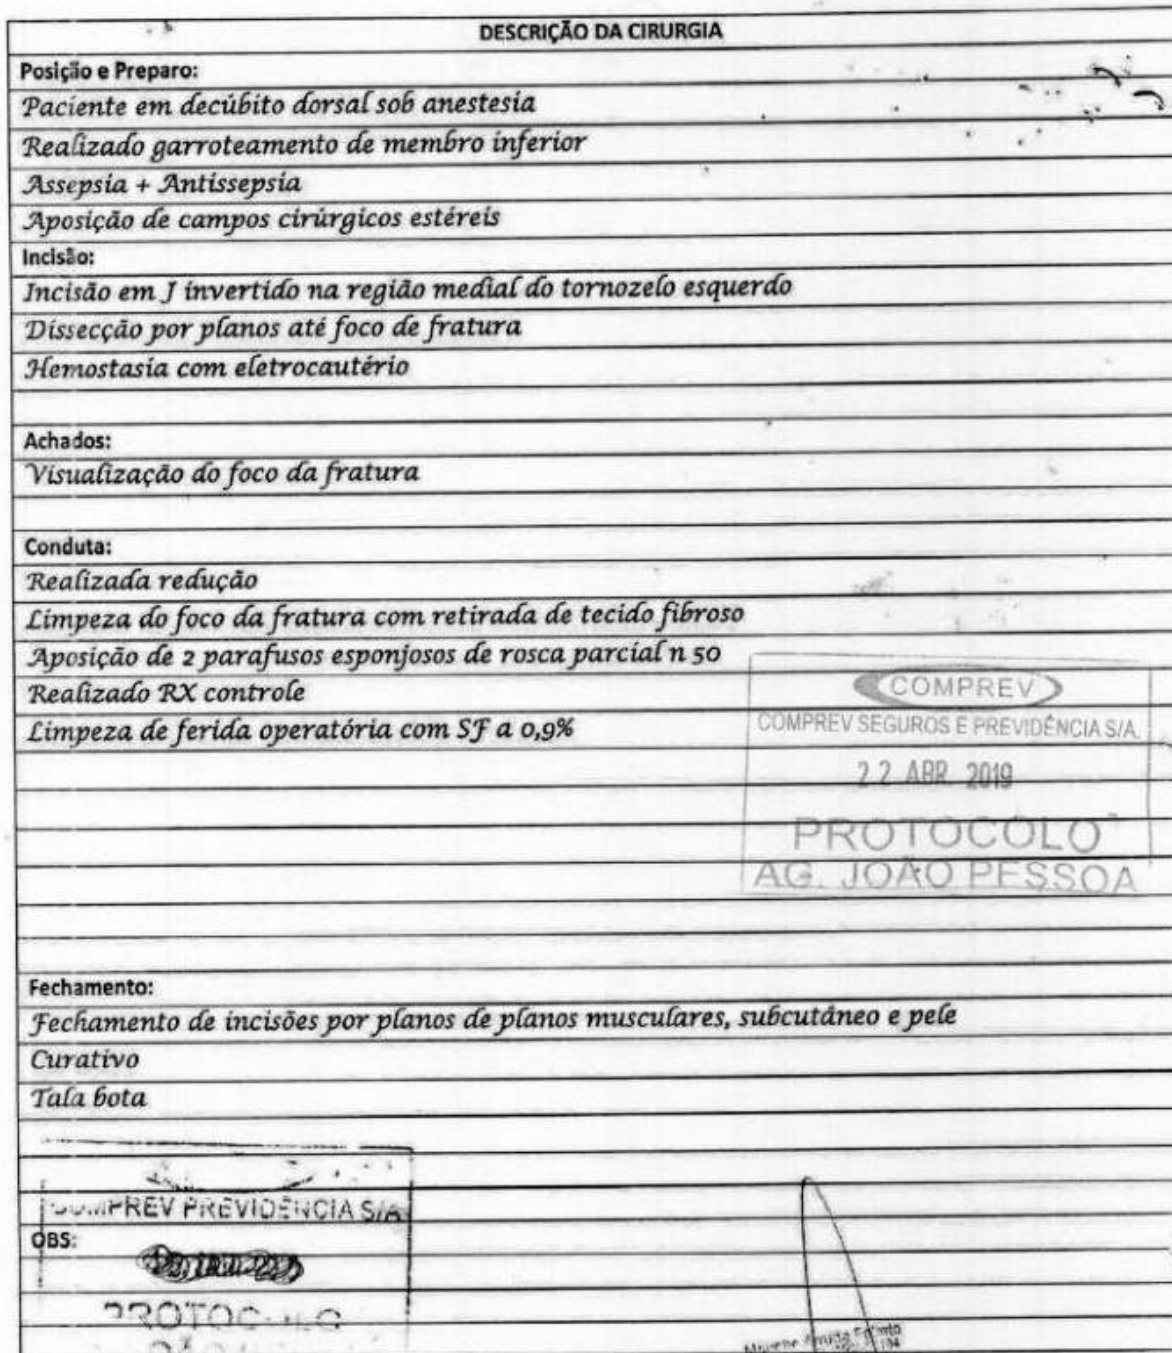 DESCRIÇÃO DA CIRURGIA
Posição e Preparo:
Paciente em decúbito dorsal sob anestesia
Realizado garroteamento de membro inferior
Assepsia + Antissepsia
Aposição de campos cirúrgicos estéreis
Incisão:
Incisão em J invertido na região medial do tornozelo esquerdo
Dissecção por planos até foco de fratura
Hemostasia com eletrocautério
Achados:
Visualização do foco da fratura
Conduta:
Realizada redução
Limpeza do foco da fratura com retirada de tecido fibroso
Aposição de 2 parafusos esponjosos de rosca parcial n 50
Realizado RX controle
Limpeza de ferida operatória com SF a 0,9%
COMPREV
COMPREV SEGUROS E PREVIDÊNCIA S/A.
22 ABR. 2019
PROTOCOLO
AG. JOÃO PESSOA
Fechamento:
Fechamento de incisões por planos de planos musculares, subcutâneo e pele
Curativo
Tala bota
COMPREV PREVIDÊNCIA S/A
OBS:
PROTOCOLO